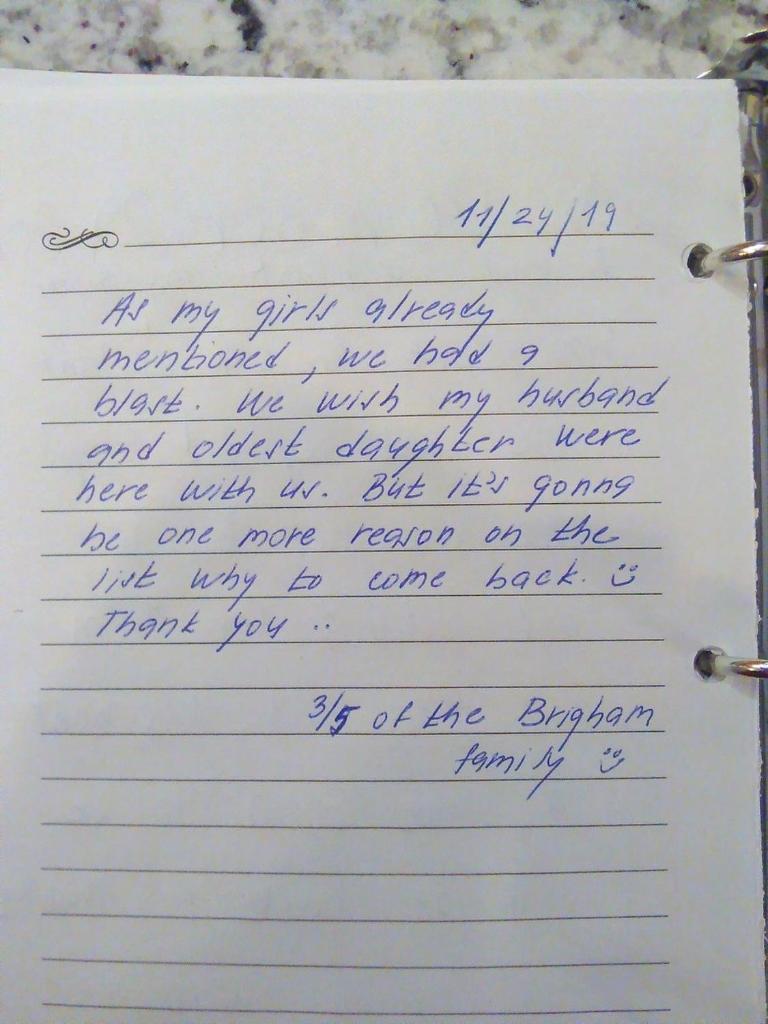 11/24/19
As my girls already
mentioned, we had a
blast. We wish my husband
and oldest daughter were
here with us. But it's gonna
be one more reason on the
list why to come back. :)
Thank you ..
3/5 of the Brigham
family :)